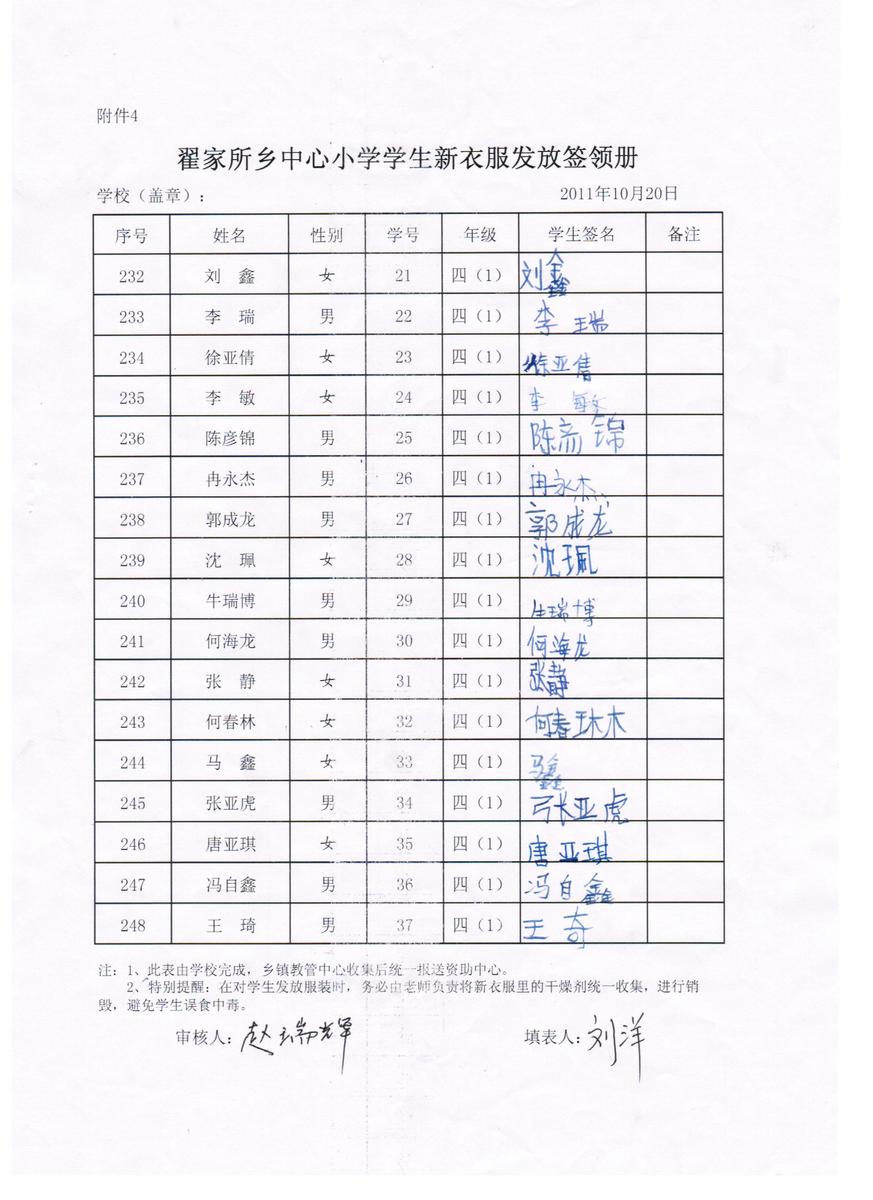 附件4
翟家所乡中心小学学生新衣服发放签领册
学校（盖章）： 2011年10月20日
序号 姓名 性别 学号 年级 学生签名 备注
232 刘 鑫 女 21 四（1） 刘鑫
233 李 瑞 男 22 四（1） 李瑞
234 徐亚倩 女 23 四（1） 徐亚倩
235 李 敏 女 24 四（1） 李敏
236 陈彦锦 男 25 四（1） 陈彦锦
237 冉永杰 男 26 四（1） 冉永杰
238 郭成龙 男 27 四（1） 郭成龙
239 沈 珮 女 28 四（1） 沈珮
240 牛瑞博 男 29 四（1） 牛瑞博
241 何海龙 男 30 四（1） 何海龙
242 张 静 女 31 四（1） 张静
243 何春林 女 32 四（1） 何春琳
244 马 鑫 女 33 四（1） 马鑫
245 张亚虎 男 34 四（1） 张亚虎
246 唐亚琪 女 35 四（1） 唐亚琪
247 冯自鑫 男 36 四（1） 冯自鑫
248 王 琦 男 37 四（1） 王奇
注：1、此表由学校完成，乡镇教管中心收集后统一报送资助中心。
2、特别提醒：在对学生发放服装时，务必由老师负责将新衣服里的干燥剂统一收集，进行销
毁，避免学生误食中毒。
审核人：赵瑞辉 填表人：刘洋